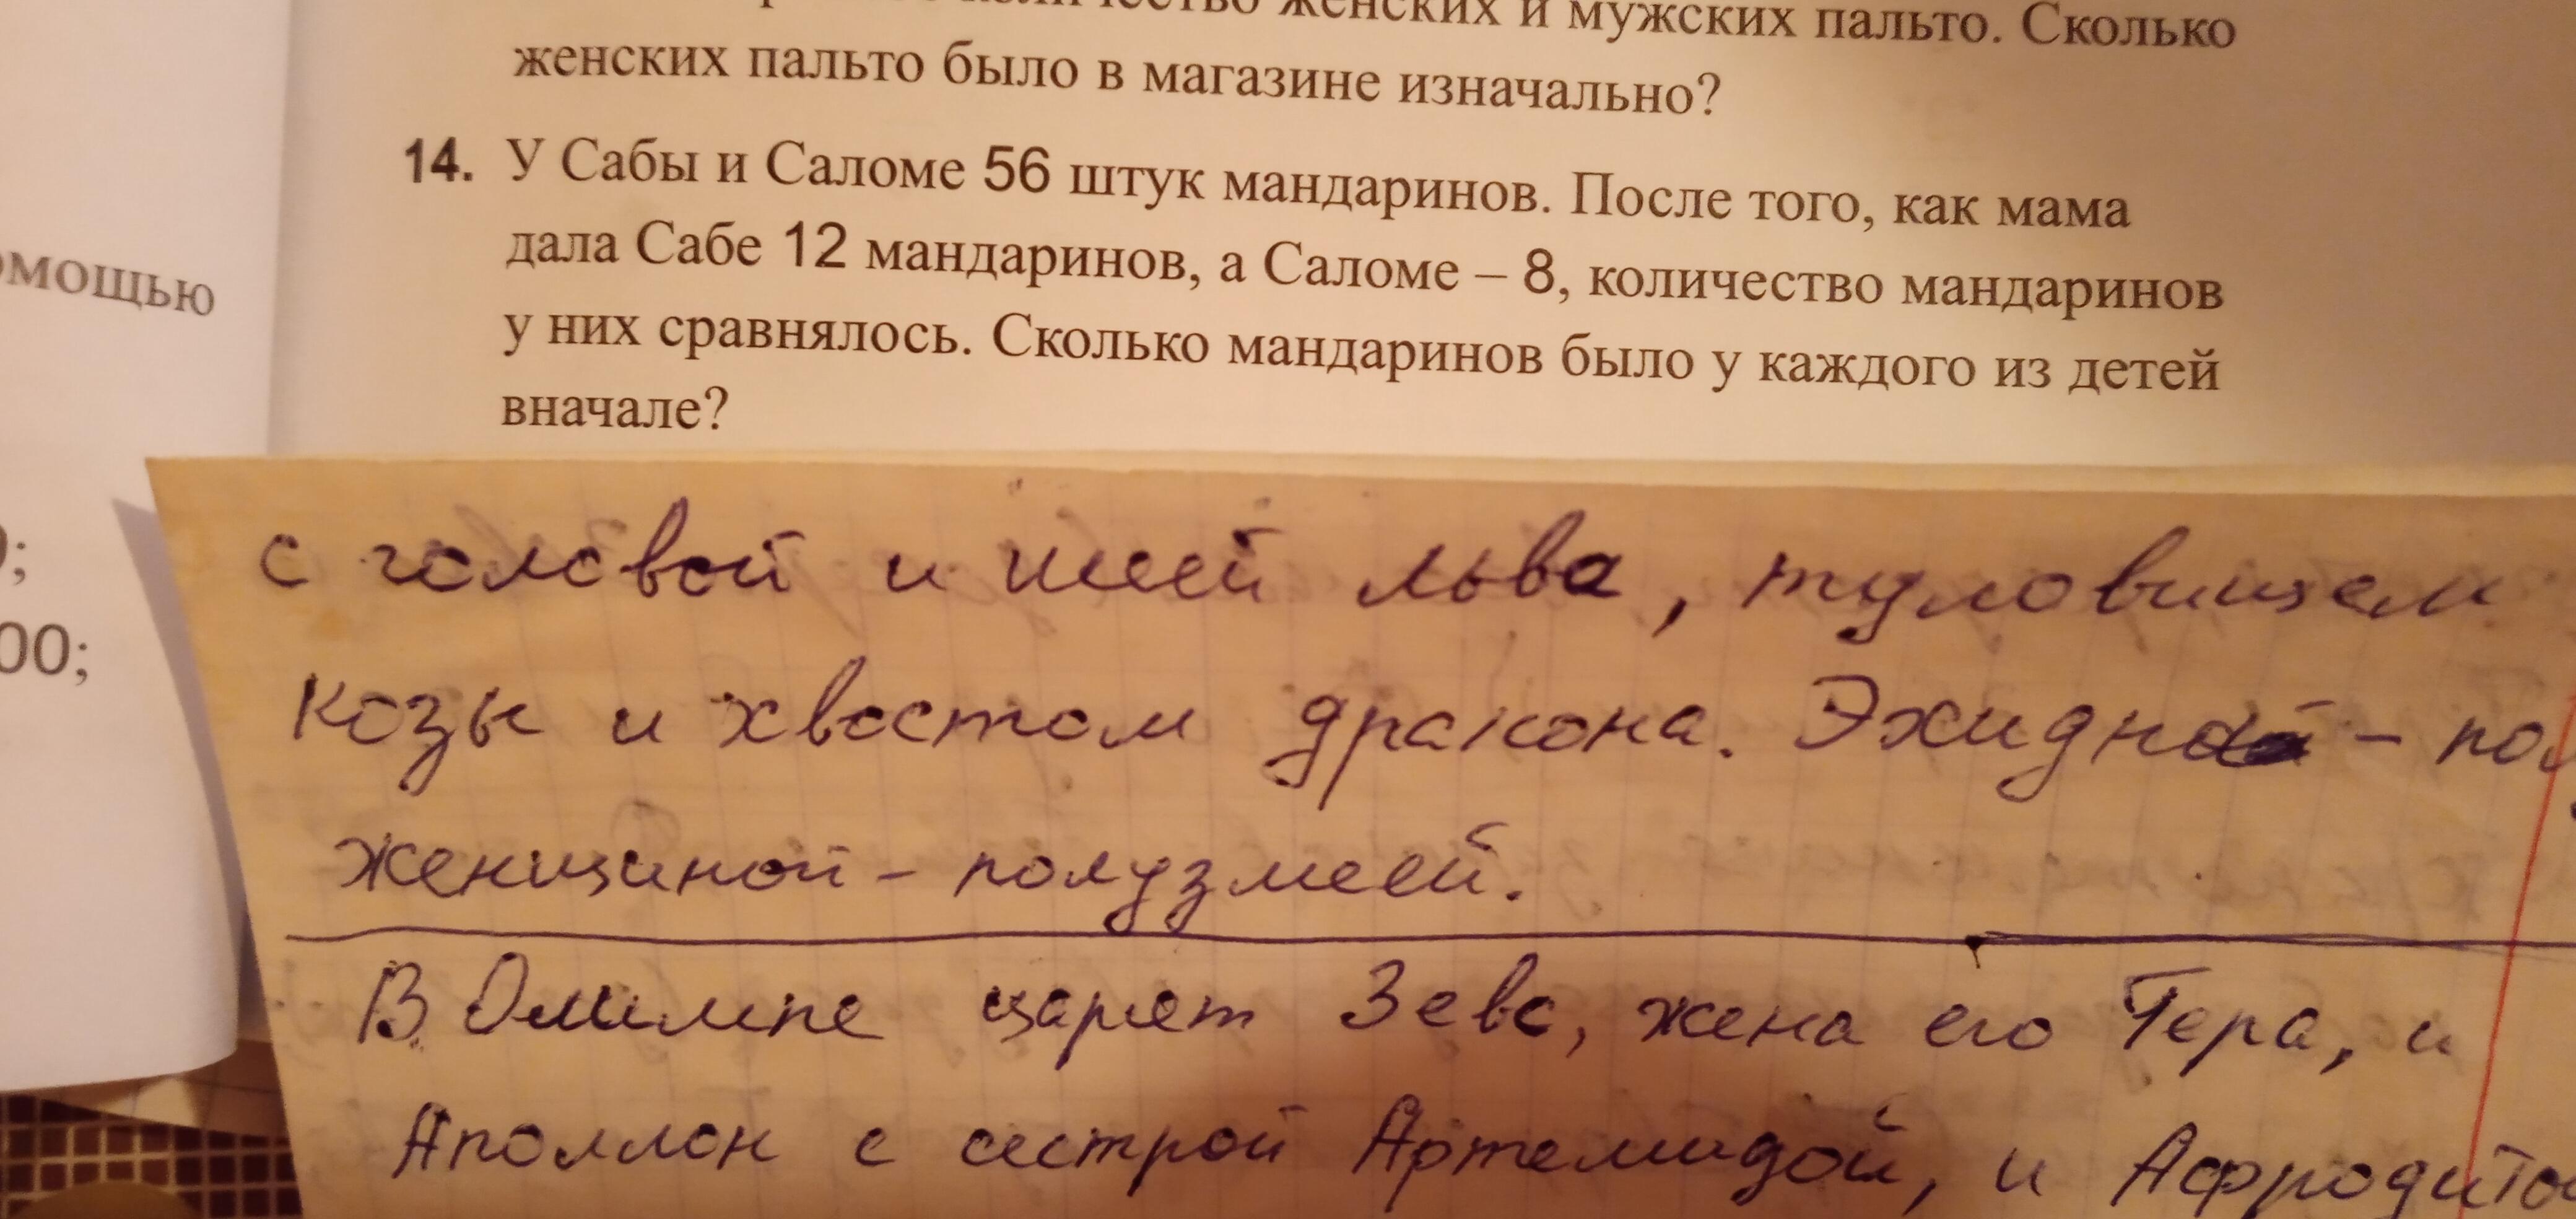 количество женских и мужских пальто. Сколько
женских пальто было в магазине изначально?
14. У Сабы и Саломе 56 штук мандаринов. После того, как мама
дала Сабе 12 мандаринов, а Саломе – 8, количество мандаринов
у них сравнялось. Сколько мандаринов было у каждого из детей
вначале?
омощью
0;
00;
с головой и шеей льва, туловищем
козы и хвостом дракона. Эхидной - пол
женщиной - полузмеей.
В Олимпе царят Зевс, жена его Гера, и
Аполлон с сестрой Артемидой, и Афродита